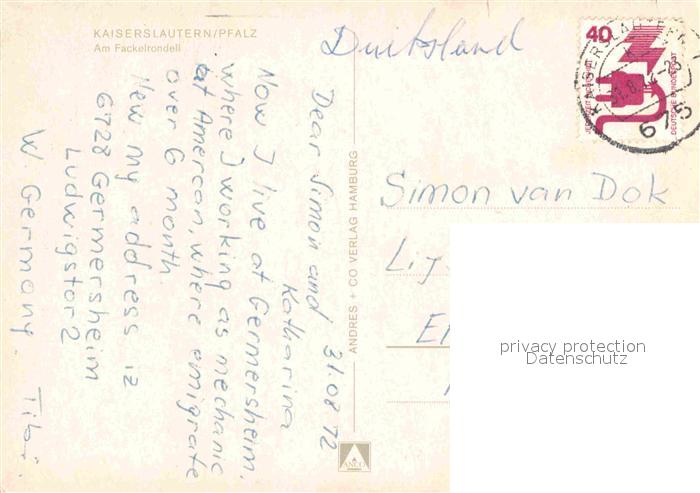 KAISERSLAUTERN/PFALZ
Am Fackelrondell
Duitsland
40
JEDERZEIT SICHERHEIT
DEUTSCHE BUNDESPOST
675
31.08 72
Dear Simon and
Katharina
Now I live at Germersheim,
where I working as mechanic
at Amercan, where emigrate
over 6 month
New my address iz
6728 Germersheim
Ludwigstor 2
W. Germany.
Tibor.
ANDRES + CO VERLAG HAMBURG
ANCO
Simon van Dok
privacy protection
Datenschutz